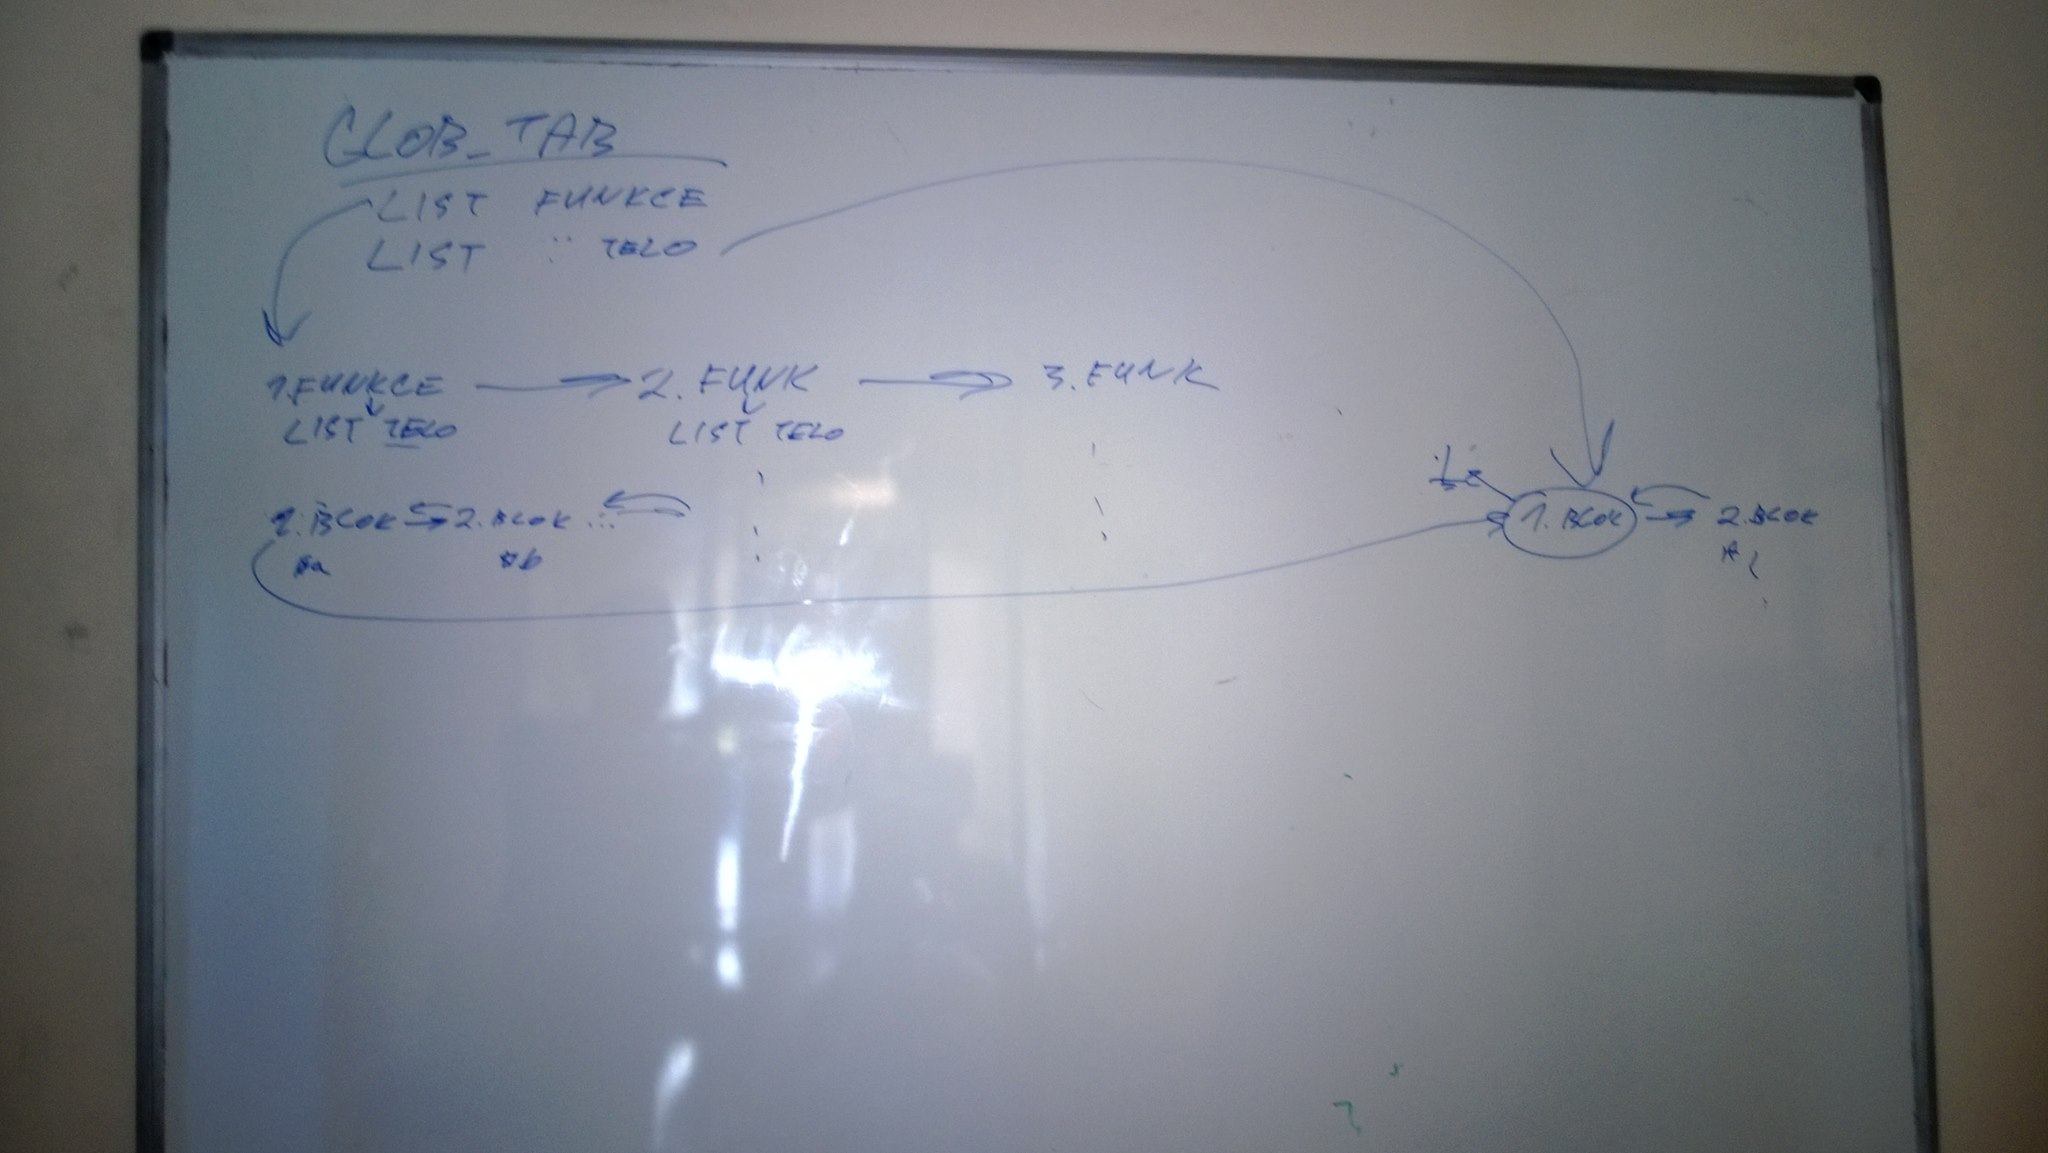 GLOB_TAB
LIST FUNKCE
LIST " TELO
1. FUNKCE 2. FUNK 3. FUNK
LIST TELO LIST TELO
1. BLOK 2. BLOK ... 1. BLOK 2. BLOK
*a *b